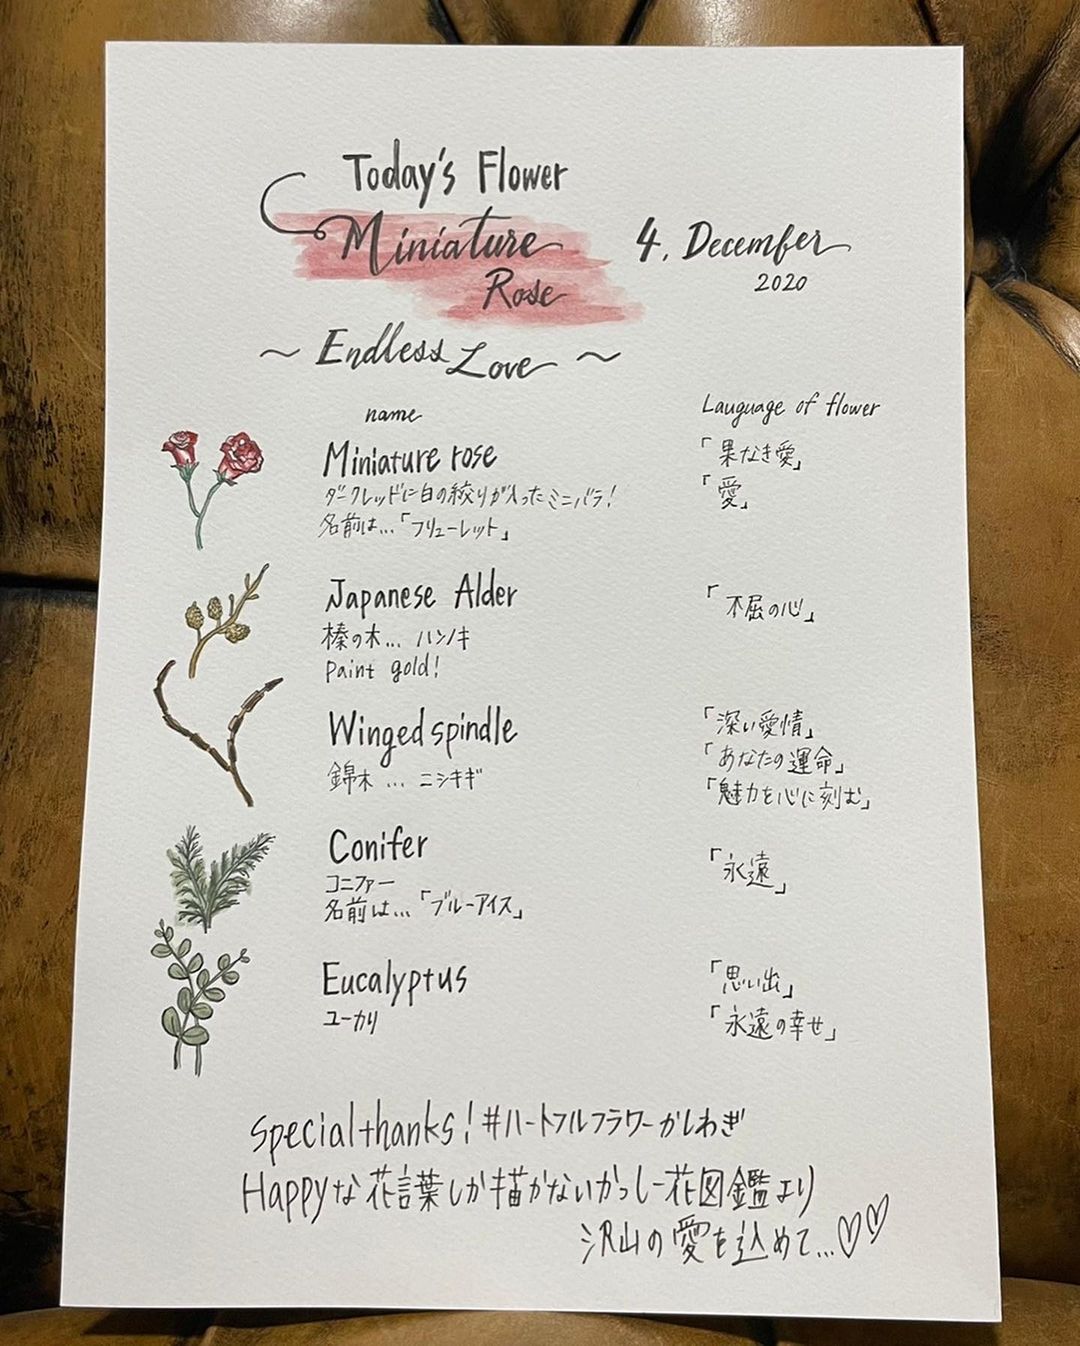 Today's Flower
Miniature
Rose
4. December
2020
~ Endless Love ~
name
Lauguage of flower
Miniature rose
ダークレッドに白の絞りが入ったミニバラ!
名前は…「フリューレット」
「果なき愛」
「愛」
Japanese Alder
榛の木… ハンノキ
paint gold!
「不屈の心」
Winged spindle
錦木 … ニシキギ
「深い愛情」
「あなたの運命」
「魅力を心に刻む」
Conifer
コニファー
名前は…「ブルーアイス」
「永遠」
Eucalyptus
ユーカリ
「思い出」
「永遠の幸せ」
Special thanks! #ハートフルフラワーかしわぎ
Happyな花言葉しか描かないかっしー花図鑑より
沢山の愛を込めて…♡♡